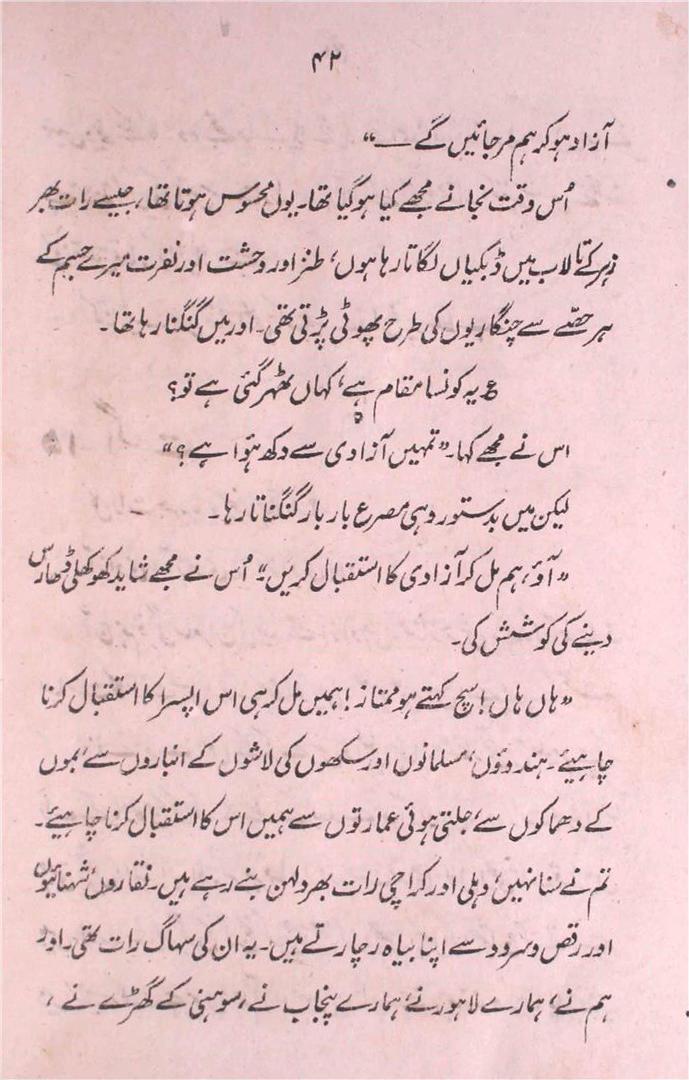 ۴۲
آزاد ہوکر ہم مرجائیں گے ـــ“
اُس وقت نجانے مجھے کیا ہوگیا تھا۔ یوں محسوس ہوتا تھا، جیسے رات بھر
زہر کے تالاب میں ڈبکیاں لگاتا رہا ہوں، طنز اور وحشت اور نفرت میرے جسم کے
ہر حصّے سے چنگاریوں کی طرح پھوٹی پڑتی تھی۔ اور میں گنگنا رہا تھا۔
؏ یہ کونسا مقام ہے، کہاں ٹھہر گئی ہے تو؟
اس نے مجھے کہا۔ ”تمہیں آزادی سے دکھ ہؤا ہے؟“
لیکن میں بدستور وہی مصرع بار بار گنگناتا رہا۔
”آؤ، ہم مل کر آزادی کا استقبال کریں“ اُس نے مجھے شاید کھوکھلی ڈھارس
دینے کی کوشش کی۔
”ہاں ہاں! سچ کہتے ہو ممتاز! ہمیں مل کر ہی اس اپسرا کا استقبال کرنا
چاہیئے۔ ہندوؤں، مسلمانوں اور سکھوں کی لاشوں کے انباروں سے، بموں
کے دھماکوں سے، جلتی ہوئی عمارتوں سے ہمیں اس کا استقبال کرنا چاہیئے۔
تم نے سنا نہیں، دہلی اور کراچی رات بھر دلہن بنے رہے ہیں۔ نقاروں، شہنائیوں
اور رقص و سرود سے اپنا بیاہ رچارتے ہیں۔ یہ ان کی سہاگ رات تھی۔ اور
ہم نے، ہمارے لاہور نے، ہمارے پنجاب نے، سوہنی کے گھڑے نے،